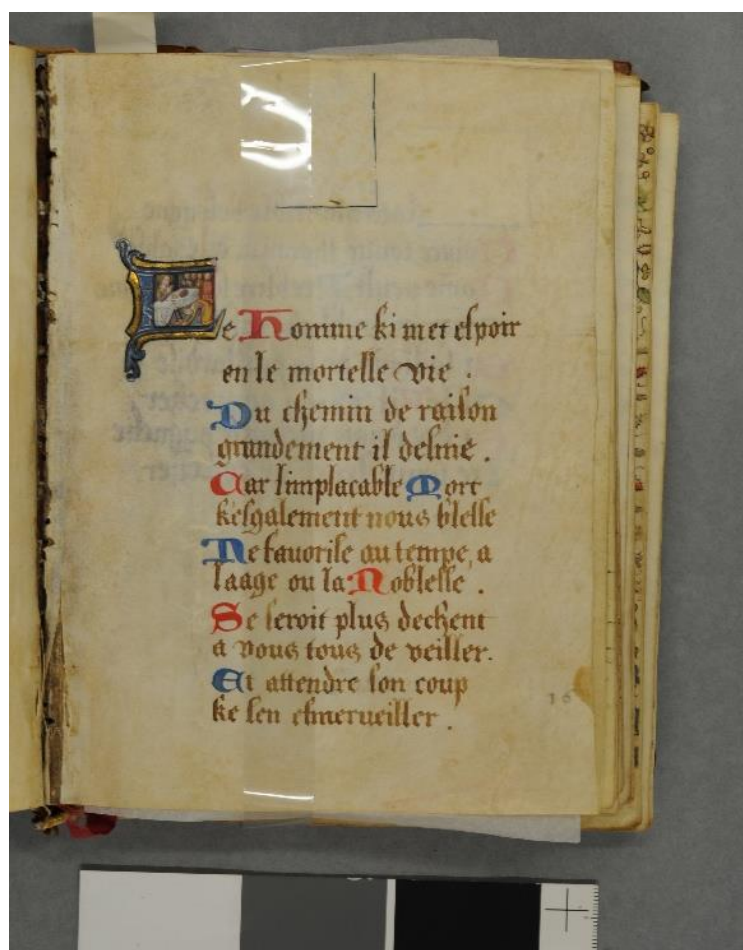 Le Homme ki met espoir
en le mortelle vie .
Du chemin de raison
grandement il desuie .
Car limplacable Mort
kesgalement nous blesse
Ne fauorise au tempe, a
laage ou la Noblesse .
Se seroit plus dechent
a vous tous de veiller.
Et attendre son coup
ke sen esmerueiller .
16